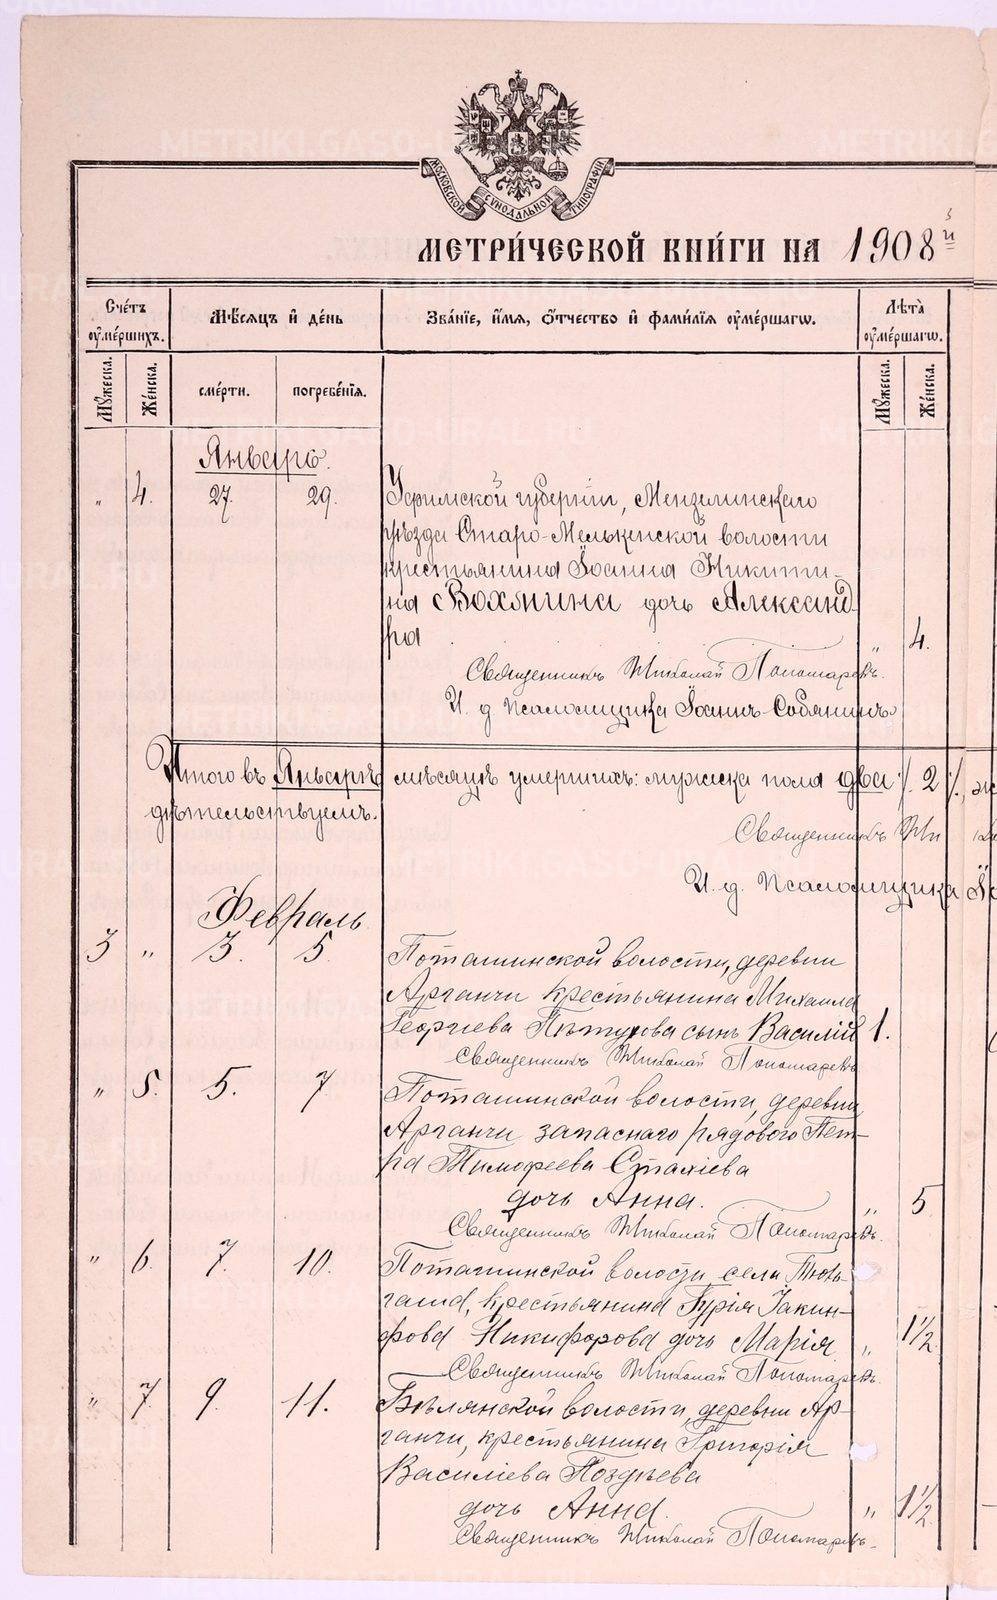 МОСКОВСКОЙ СУНОДАЛЬНОЙ ТИПОГРАФІИ
МЕТРИ́ЧЕСКОЙ КНИ́ГИ НА 1908 й
Сче́тъ ᲂу҆ме́ршихъ. Мѣ́сяцъ и҆ де́нь Зва́нїе, и҆́мя, ѻ҆́тчество и҆ фами́лїя ᲂу҆ме́ршагѡ. Лѣ́та ᲂу҆ме́ршагѡ.
Мꙋ́жеска. Же́нска. сме́рти. погребе́нїя. Мꙋ́жеска. Же́нска.
Январь.
„ 4. 27. 29. Уфимской губерніи, Мензелинскаго
уѣзда Старо-Мелькенской волости
крестьянина Іоанна Никити-
на Вохмина дочь Александ-
ра „ 4.
Священникъ Николай Пономаревъ.
И. д. псаломщика Іоаннъ Собянинъ
Итого въ Январѣ мѣсяцѣ умершихъ: мужеска пола два /.2./, 
дѣтельствуемъ.
Священникъ Ни
И. д. псаломщика
Февраль
3 „ 3. 5. Поташинской волости, деревни
Арганчи крестьянина Михаила
Георгіева Пѣтухова сынъ Василій 1.
Священникъ Николай Пономаревъ
„ 5. 5. 7 Поташинской волости, деревни
Арганчи запаснаго рядового Пет-
ра Тимофеева Стахіева
дочь Анна. „ 5
Священникъ Николай Пономаревъ.
„ 6. 7. 10. Поташинской волости села Тюль-
гаша, крестьянина Гурія Іакин-
фова Никифорова дочь Марія „ 1½
Священникъ Николай Пономаревъ.
„ 7. 9. 11. Бѣлянской волости, деревни Ар-
ганчи, крестьянина Григорія
Василіева Поздѣева
дочь Анна. „ 1½
Священникъ Николай Пономаревъ.